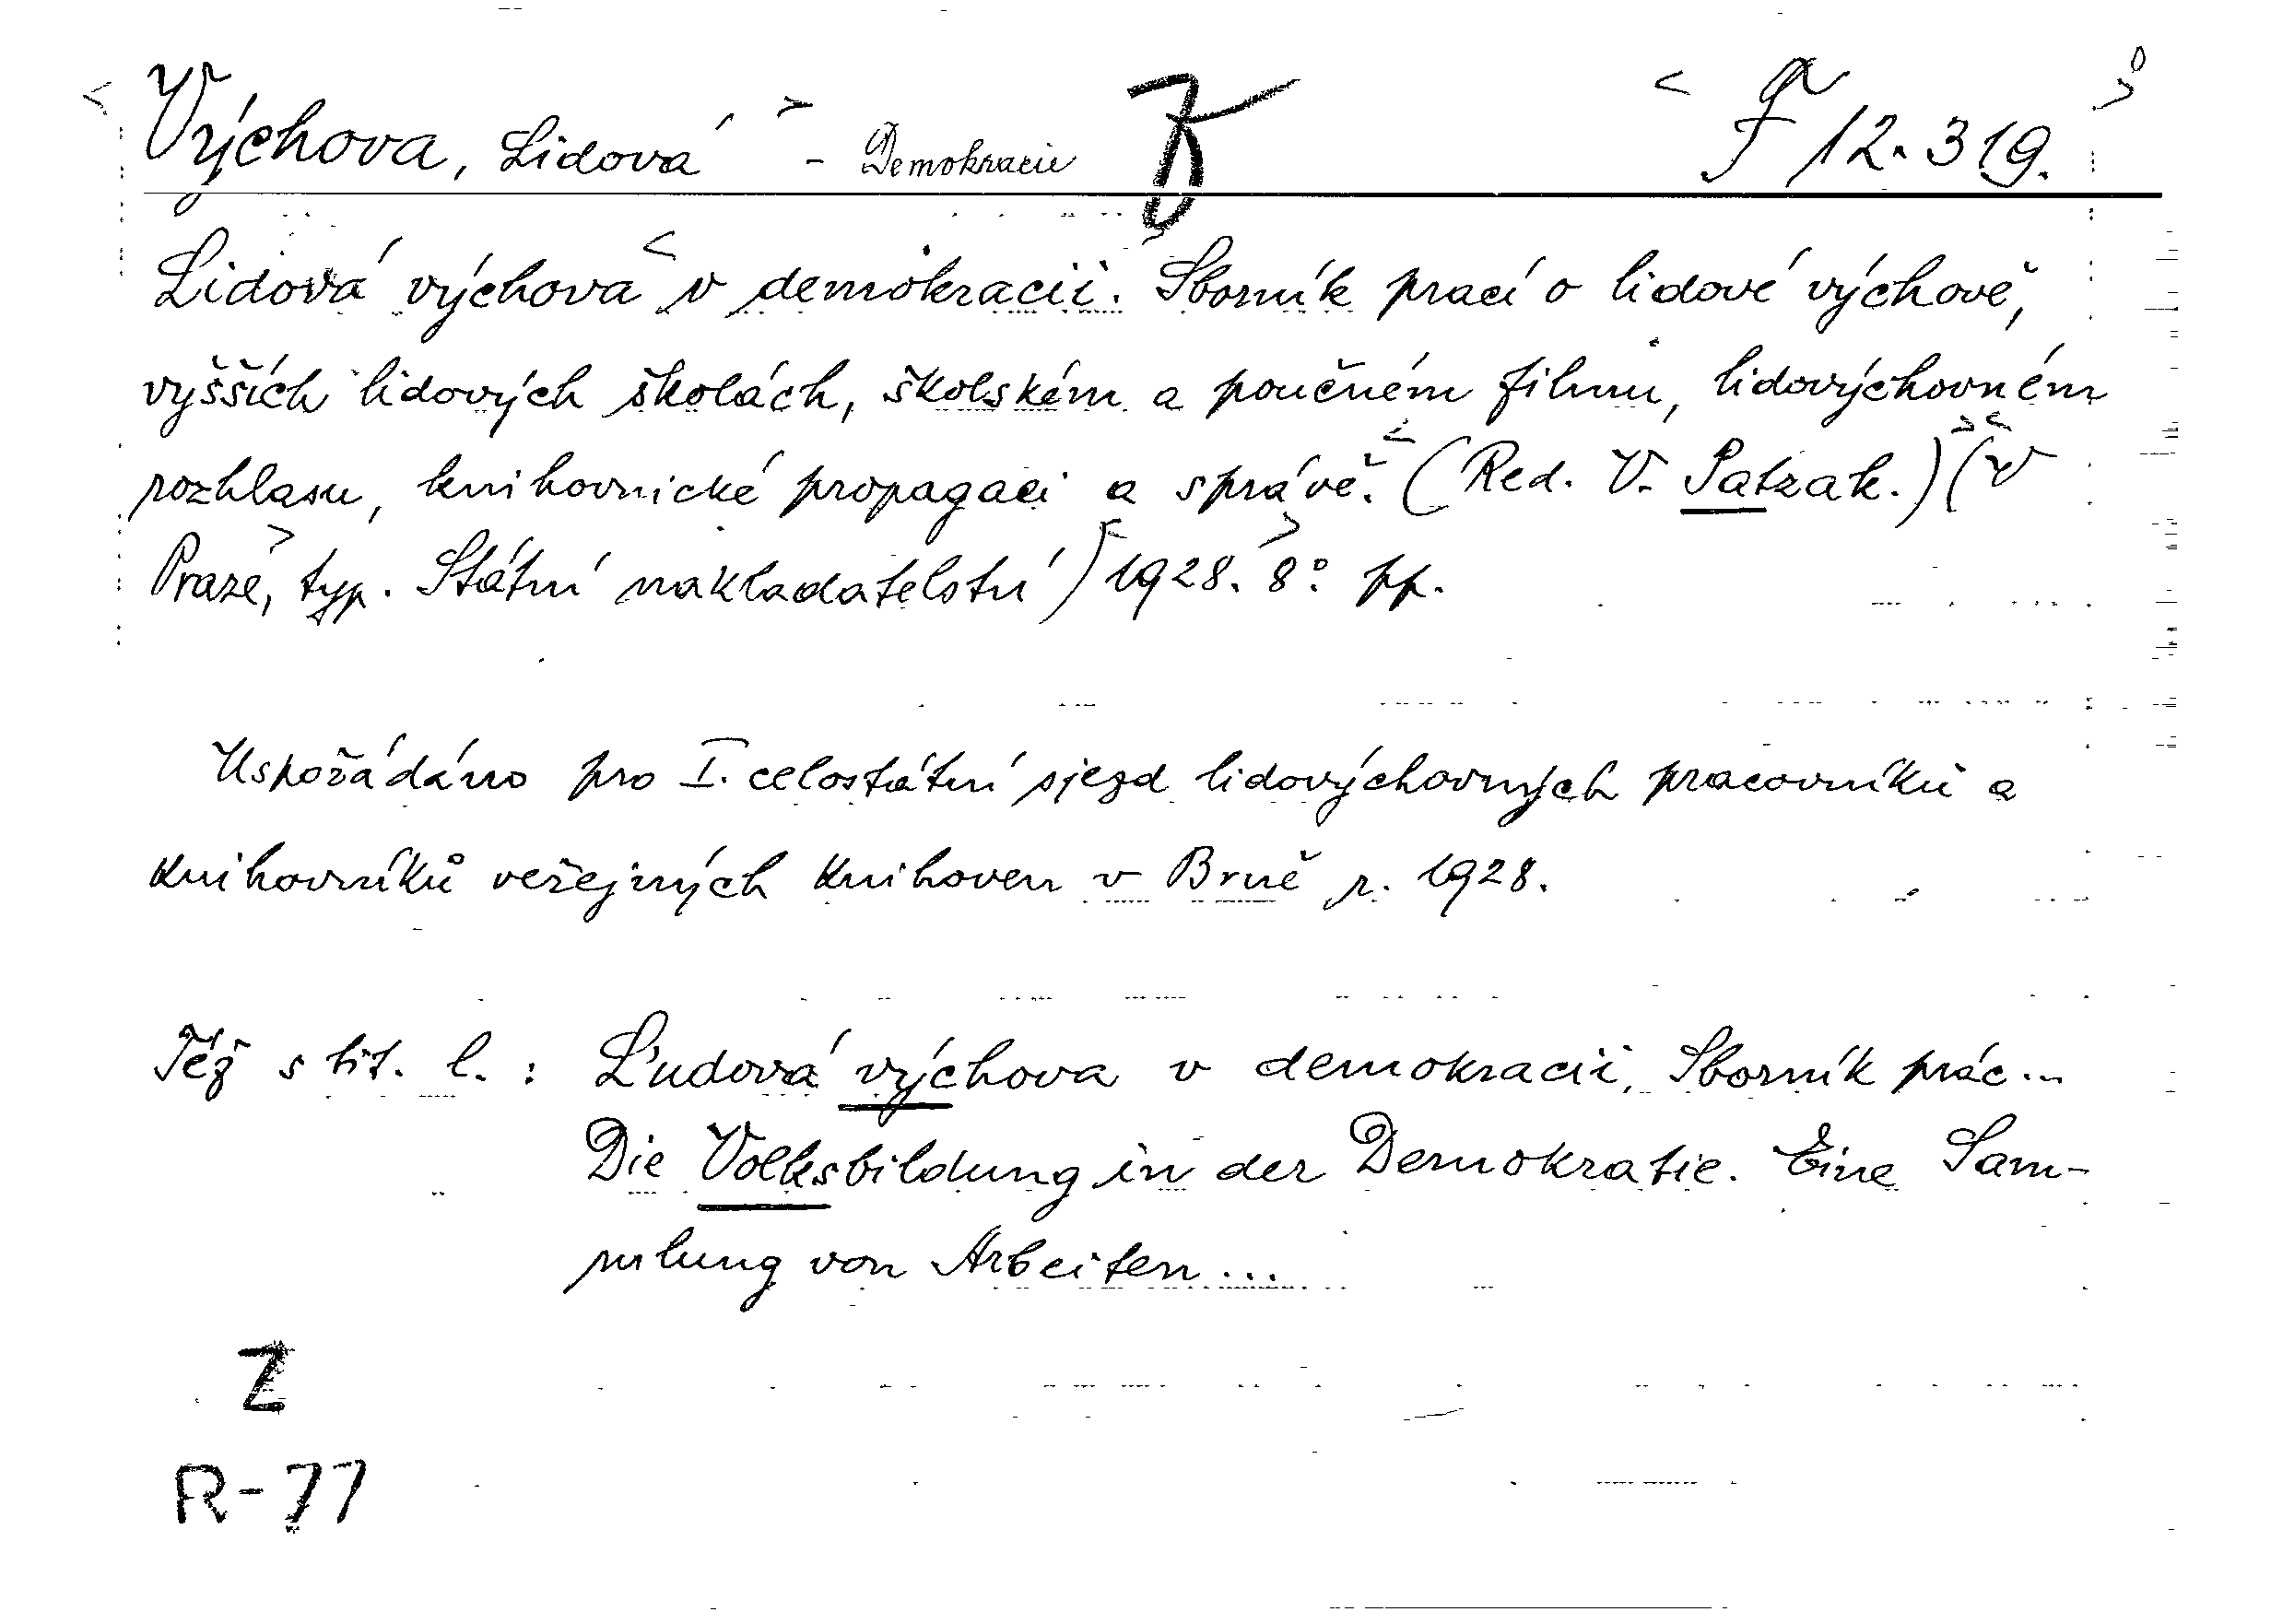 Výchova, Lidová - Demokracie F 12.319.
Lidová výchova v demokracii. Sborník prací o lidové výchově,
vyšších lidových školách, školském a poučném filmu, lidovýchovném
rozhlasu, knihovnické propagaci a správě. (Red. V. Patzak.) (V
Praze, typ. Státní nakladatelství) 1928. 8° pp.
Uspořádáno pro I. celostátní sjezd lidovýchovných pracovníků a
knihovníků veřejných knihoven v Brně r. 1928.
Též s tit. l. : Ľudová výchova v demokracii. Sborník prác...
Die Volksbildung in der Demokratie. Eine Sam-
mlung von Arbeiten...
Z
R-77